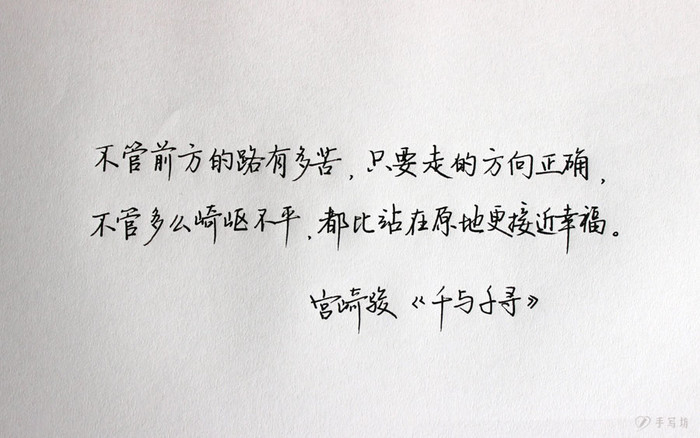 不管前方的路有多苦，只要走的方向正确，
不管多么崎岖不平，都比站在原地更接近幸福。
宫崎骏《千与千寻》
手写坊